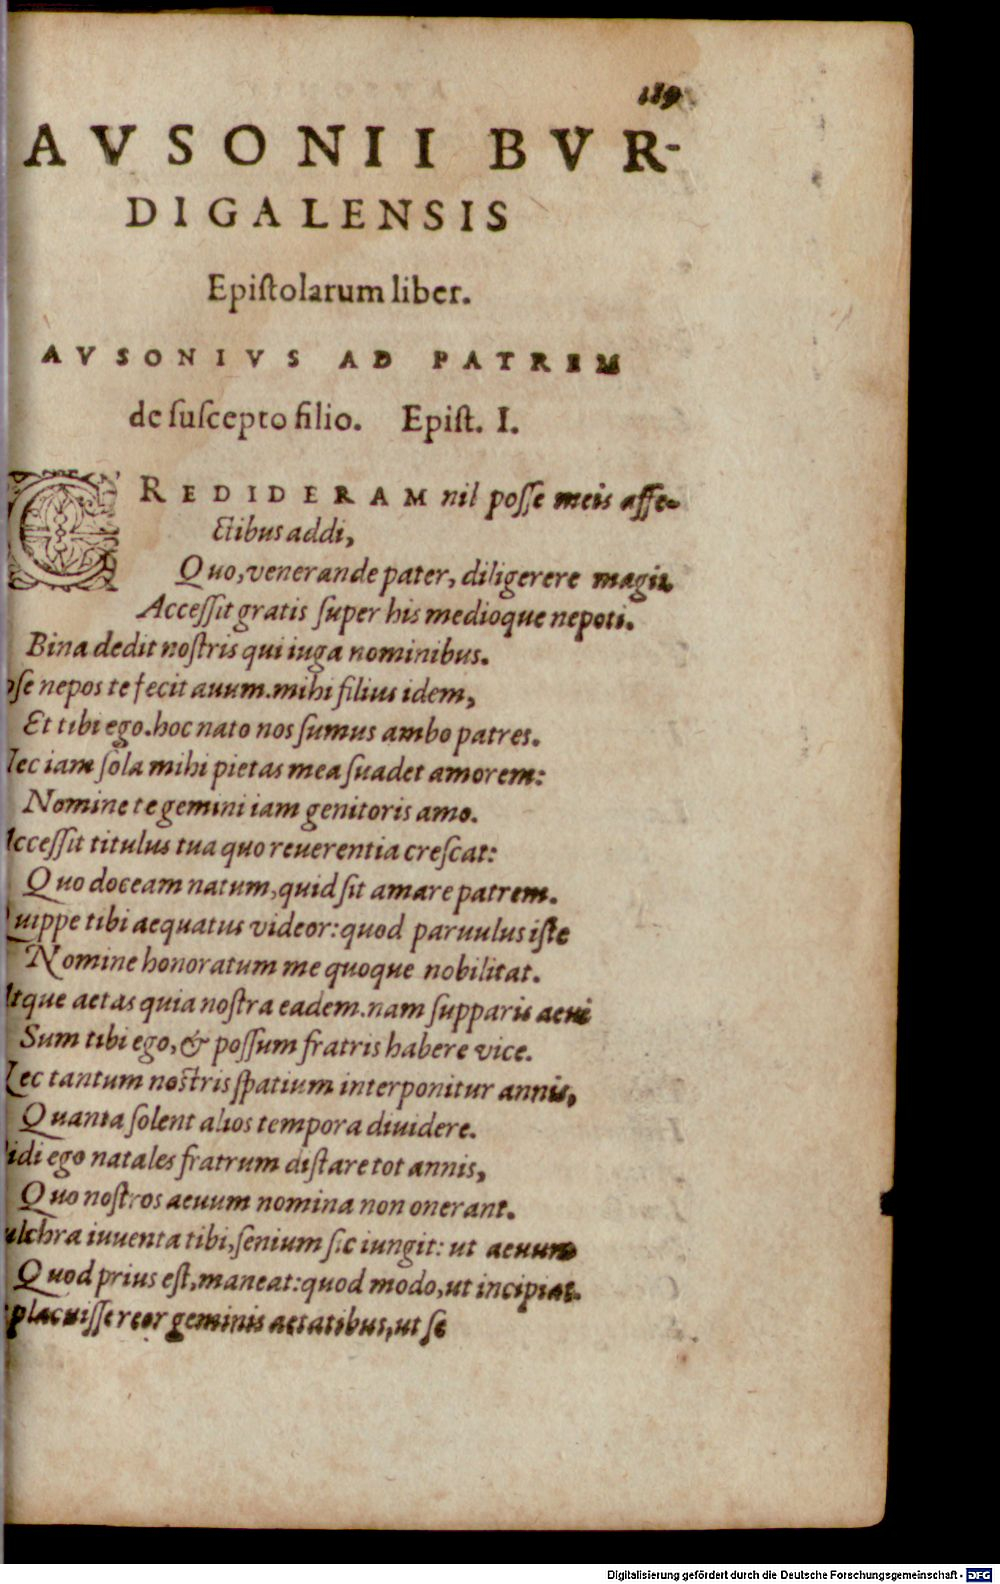 189
AVSONII BVR-
DIGALENSIS
Epistolarum liber.
AVSONIVS AD PATREM
de suscepto filio. Epist. I.
CREDIDERAM nil posse meis affe-
ctibus addi,
Quo, venerande pater, diligerere magis
Accessit gratis super his medioque nepoti.
Bina dedit nostris qui iuga nominibus.
pse nepos te fecit auum. mihi filius idem,
Et tibi ego. hoc nato nos sumus ambo patres.
Nec iam sola mihi pietas mea suadet amorem:
Nomine te gemini iam genitoris amo.
Accessit titulus tua quo reuerentia crescat:
Quo doceam natum, quid sit amare patrem.
Quippe tibi aequatus videor: quod paruulus iste
Nomine honoratum me quoque nobilitat.
Atque aetas quia nostra eadem. nam supparis aeui
Sum tibi ego, & possum fratris habere vice.
Nec tantum nostris spatium interponitur annis,
Quanta solent alios tempora diuidere.
Vidi ego natales fratrum distare tot annis,
Quo nostros aeuum nomina non onerant.
ulchra iuuenta tibi, senium sic iungit: ut aeuum
Quod prius est, maneat: quod modo, ut incipiat.
placuisse reor geminis aetatibus, ut se
Digitalisierung gefördert durch die Deutsche Forschungsgemeinschaft - DFG